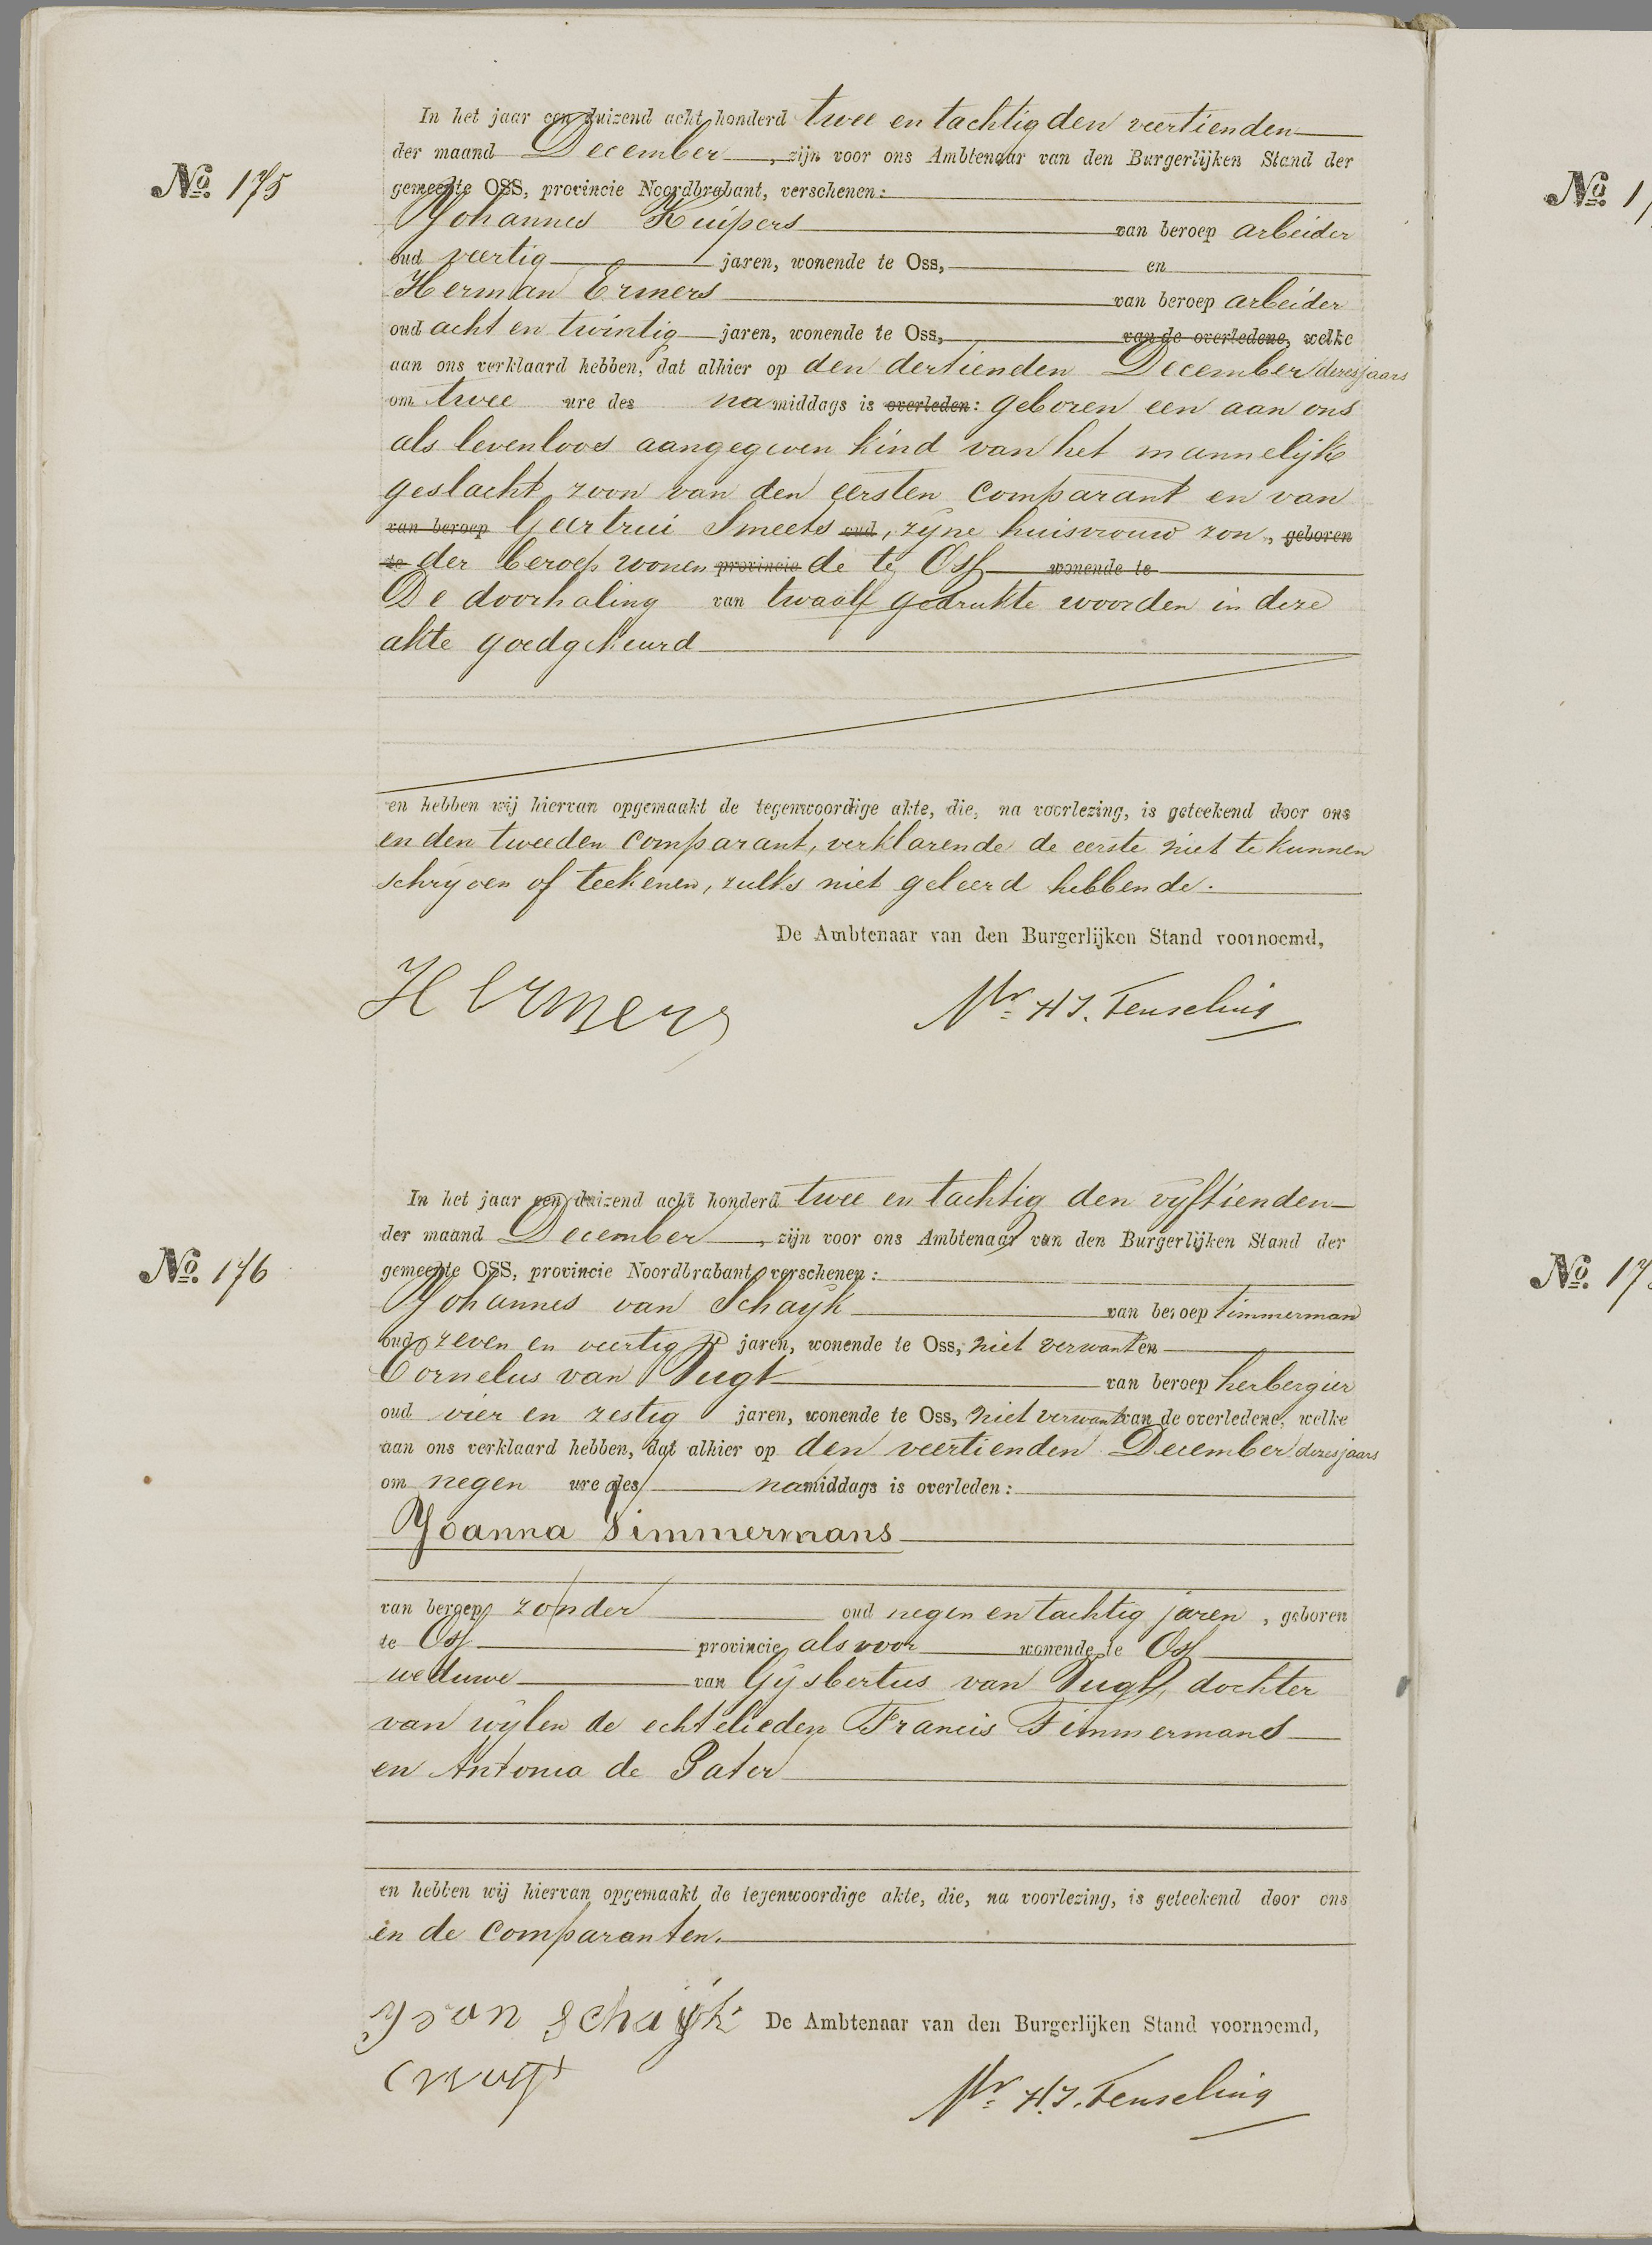 In het jaar een duizend acht honderd twee en tachtig den veertienden
der maand December, zijn voor ons Ambtenaar van den Burgerlijken Stand der
No. 175
gemeente OSS, provincie Noordbrabant, verschenen:
Johannes Kuipers van beroep arbeider
oud veertig jaren, wonende te Oss, en
Herman Ermers van beroep arbeider
oud acht en twintig jaren, wonende te Oss, van de overledene, welke
aan ons verklaard hebben, dat alhier op den dertienden December dezes jaars
om twee ure des namiddags is overleden: geboren een aan ons
als levenloos aangegeven kind van het mannelijk
geslacht zoon van den eersten comparant en van
van beroep Geertrui Smeets oud, zijne huisvrouw zon, geboren
te der beroep wonen provincie de te Oss wonende te
De doorhaling van twaalf gedrukte woorden in deze
akte goedgekeurd
en hebben wij hiervan opgemaakt de tegenwoordige akte, die, na voorlezing, is geteekend door ons
en den tweeden comparant, verklarende de eerste niet te kunnen
schrijven of teekenen, zulks niet geleerd hebbende.
De Ambtenaar van den Burgerlijken Stand voornoemd,
H Ermers Mr. H J. Fenseling
In het jaar een duizend acht honderd twee en tachtig den vijftienden
der maand December, zijn voor ons Ambtenaar van den Burgerlijken Stand der
No. 176
gemeente OSS, provincie Noordbrabant, verschenen:
Johannes van Schayk van beroep timmerman
oud zeven en veertig jaren, wonende te Oss, niet verwant en
Cornelus van Vugt van beroep herbergier
oud vier en zestig jaren, wonende te Oss, niet verwant van de overledene, welke
aan ons verklaard hebben, dat alhier op den veertienden December dezes jaars
om negen ure des namiddags is overleden:
Joanna Timmermans
van beroep zonder oud negen en tachtig jaren, geboren
te Oss provincie als voor wonende te Oss
weduwe van Gijsbertus van Vugt, dochter
van wijlen de echtelieden Francis Timmermans
en Antonia de Pater
en hebben wij hiervan opgemaakt de tegenwoordige akte, die, na voorlezing, is geteekend door ons
en de comparanten.
J van Schayk De Ambtenaar van den Burgerlijken Stand voornoemd,
Mr. H. J. Fenseling
No. 1
No. 17